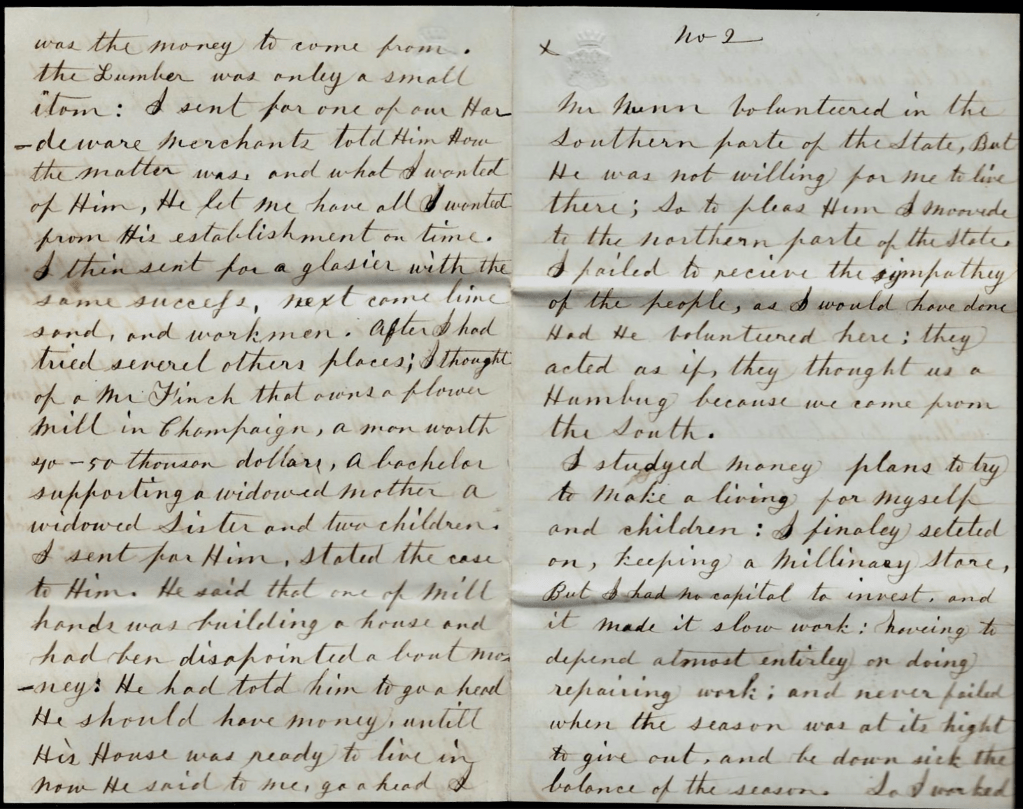 was the money to come from.
the Lumber was onley a small
itom: I sent for one of our Har
-deware merchants told Him How
the matter was. and what I wanted
of Him, He let me have all I wanted
from His establishment on time.
I thin sent for a glasier with the
same success, next came lime
sand, and workmen. After I had
tried severel others places; I thought
of a Mr Finch that owns a flower
Mill in Champaign, a man worth
40-50 thouson dollars, A bachelor
supporting a widowed mother a
widowed Sister and two children.
I sent for Him, stated the case
to Him. He said that one of mill
hands was building a house and
had ben disapointed a bout mo
-ney: He had told him to go a head
He should have money, untill
His House was ready to live in
now He said to me, go a head I
x No 2
Mr Munn volunteered in the
Southern parte of the State, But
He was not willing for me to live
there; So to pleas Him I moovede
to the northern parte of the State.
I failed to recieve the simpathey
of the people, as I would have done
Had He volunteered here; they
acted as if, they thought us a
Humbug because we came from
the South.
I studyed money plans to try
to make a living for myself
and children: I finaley seteted
on, keeping a Millinary Store,
But I had no capital to invest. and
it made it slow work: haveing to
depend almost entirley on doing
repairing work; and never failed
when the season was at its hight
to give out, and be down sick the
balance of the season. So I worked